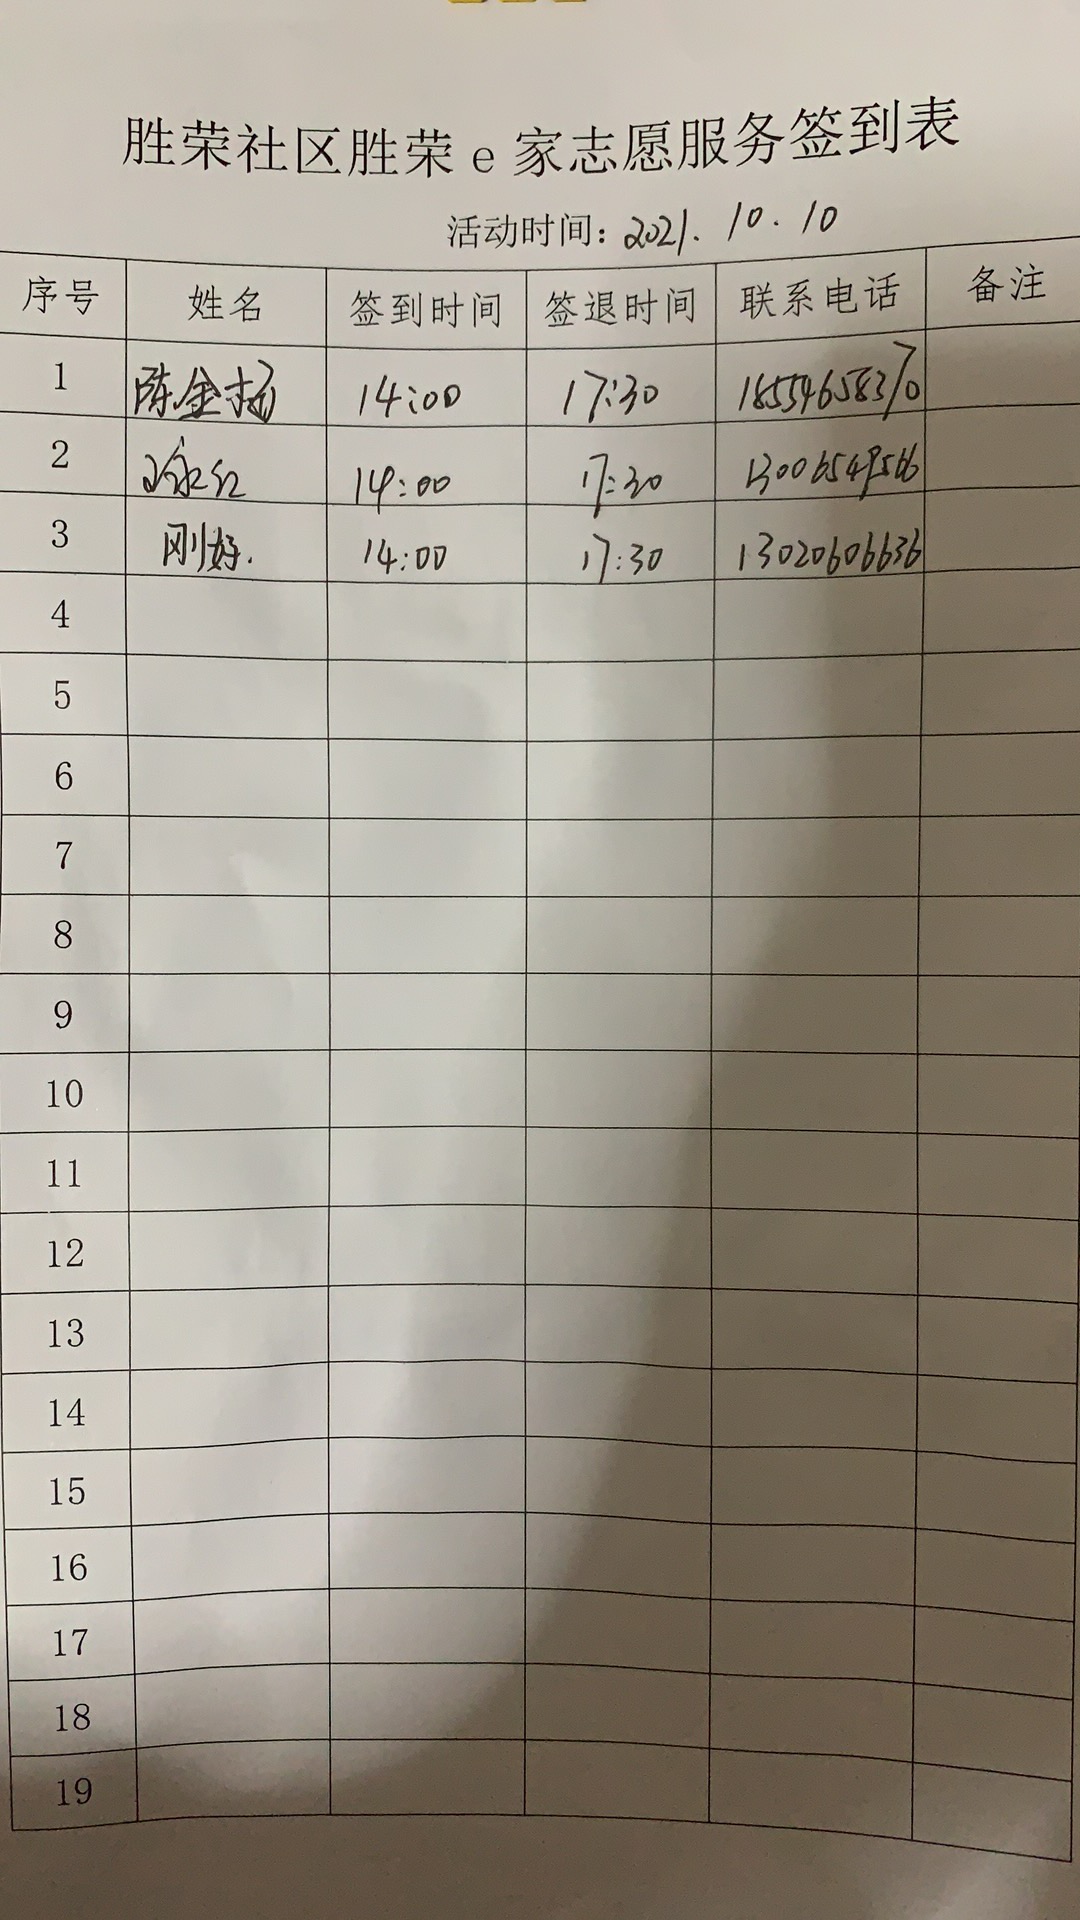 胜荣社区胜荣e家志愿服务签到表
活动时间：2021.10.10
序号 姓名 签到时间 签退时间 联系电话 备注
1 陈金扬 14:00 17:30 18554658370
2 永红 14:00 17:30
3 刚好. 14:00 17:30 13020606636
4
5
6
7
8
9
10
11
12
13
14
15
16
17
18
19